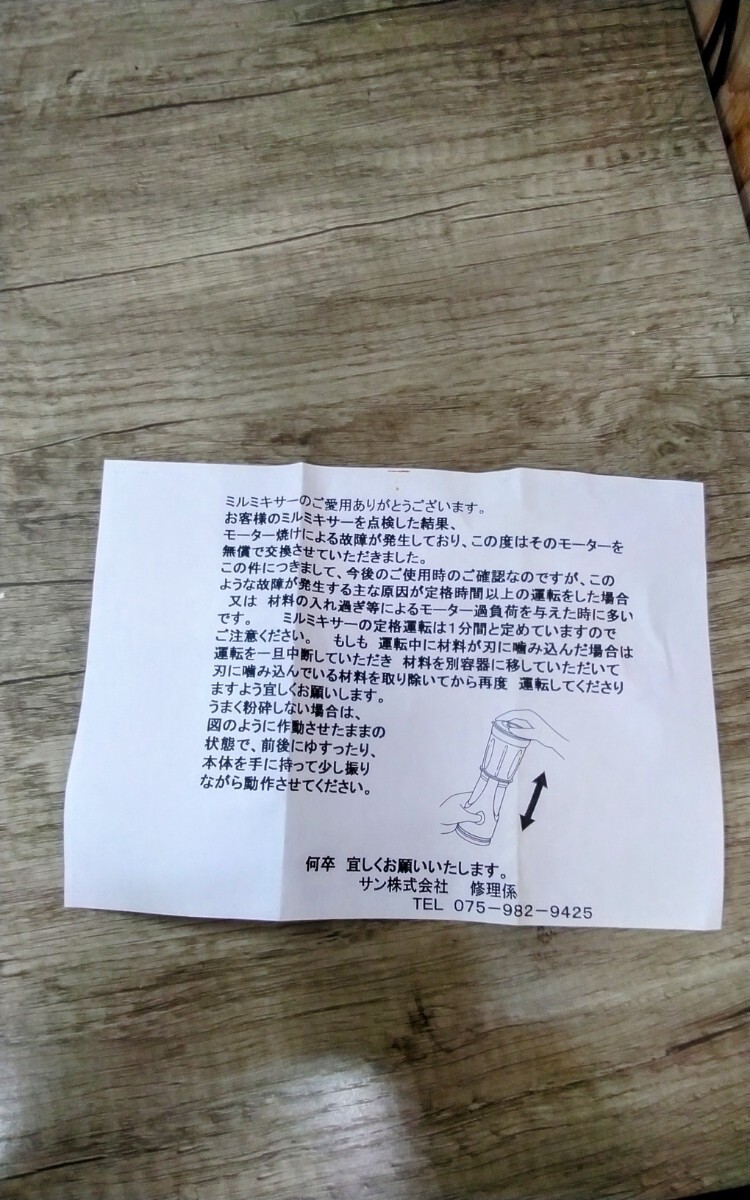 ミルミキサーのご愛用ありがとうございます。
お客様のミルミキサーを点検した結果、
モーター焼けによる故障が発生しており、この度はそのモーターを
無償で交換させていただきました。
この件につきまして、今後のご使用時のご確認なのですが、この
ような故障が発生する主な原因が定格時間以上の運転をした場合
又は 材料の入れ過ぎ等によるモーター過負荷を与えた時に多い
です。 ミルミキサーの定格運転は1分間と定めていますので
ご注意ください。 もしも 運転中に材料が刃に噛み込んだ場合は
運転を一旦中断していただき 材料を別容器に移していただいて
刃に噛み込んでいる材料を取り除いてから再度 運転してくださり
ますよう宜しくお願いします。
うまく粉砕しない場合は、
図のように作動させたままの
状態で、前後にゆすったり、
本体を手に持って少し振り
ながら動作させてください。
何卒 宜しくお願いいたします。
サン株式会社 修理係
TEL 075-982-9425